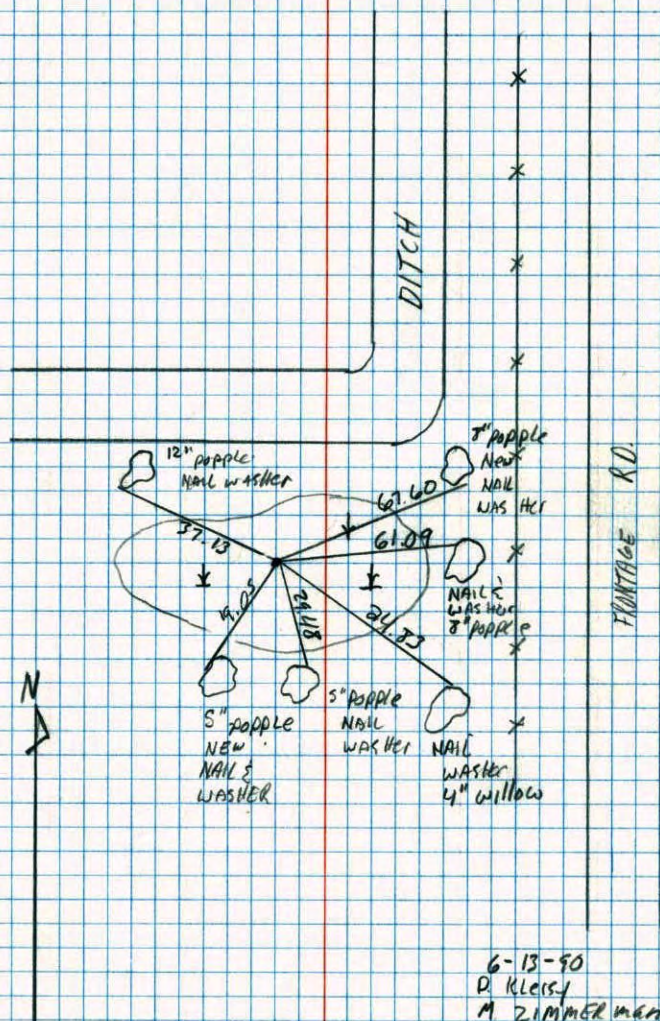 DITCH
FRONTAGE RD.
12" popple
NAIL WASHER
8" popple
New
NAIL
WASHER
37.13
67.60
61.09
19.05
29.48
24.83
NAIL &
WASHER
8" popple
5" popple
NEW
NAIL &
WASHER
5" popple
NAIL
WASHER
NAIL
WASHER
4" willow
N
6-13-90
D. Kleisy
M ZIMMERMAN